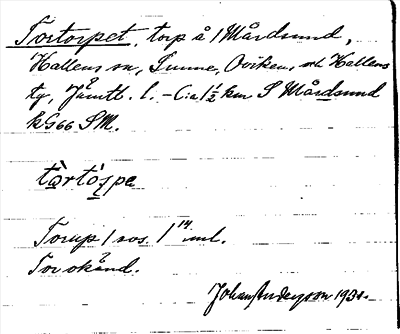 Tortorpet, torp å 1 Mårdsund,
Hallens sn, Sunne, Oviken, och Hallens
tg, Jämtl. l. - C:a 1 1/2 km S Mårdsund
kG66 SM.
tòrtó̱ṣpe
Torup 1 sos. 1 14 ml.
Tor okänd.
Johan Anderson 1931.